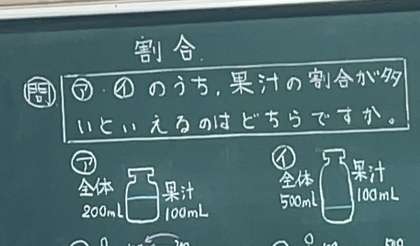 割合.
問 ㋐・㋑のうち,果汁の割合が多
いといえるのはどちらですか。
㋐ ㋑
全体 果汁 全体 果汁
200mL 100mL 500mL 100mL